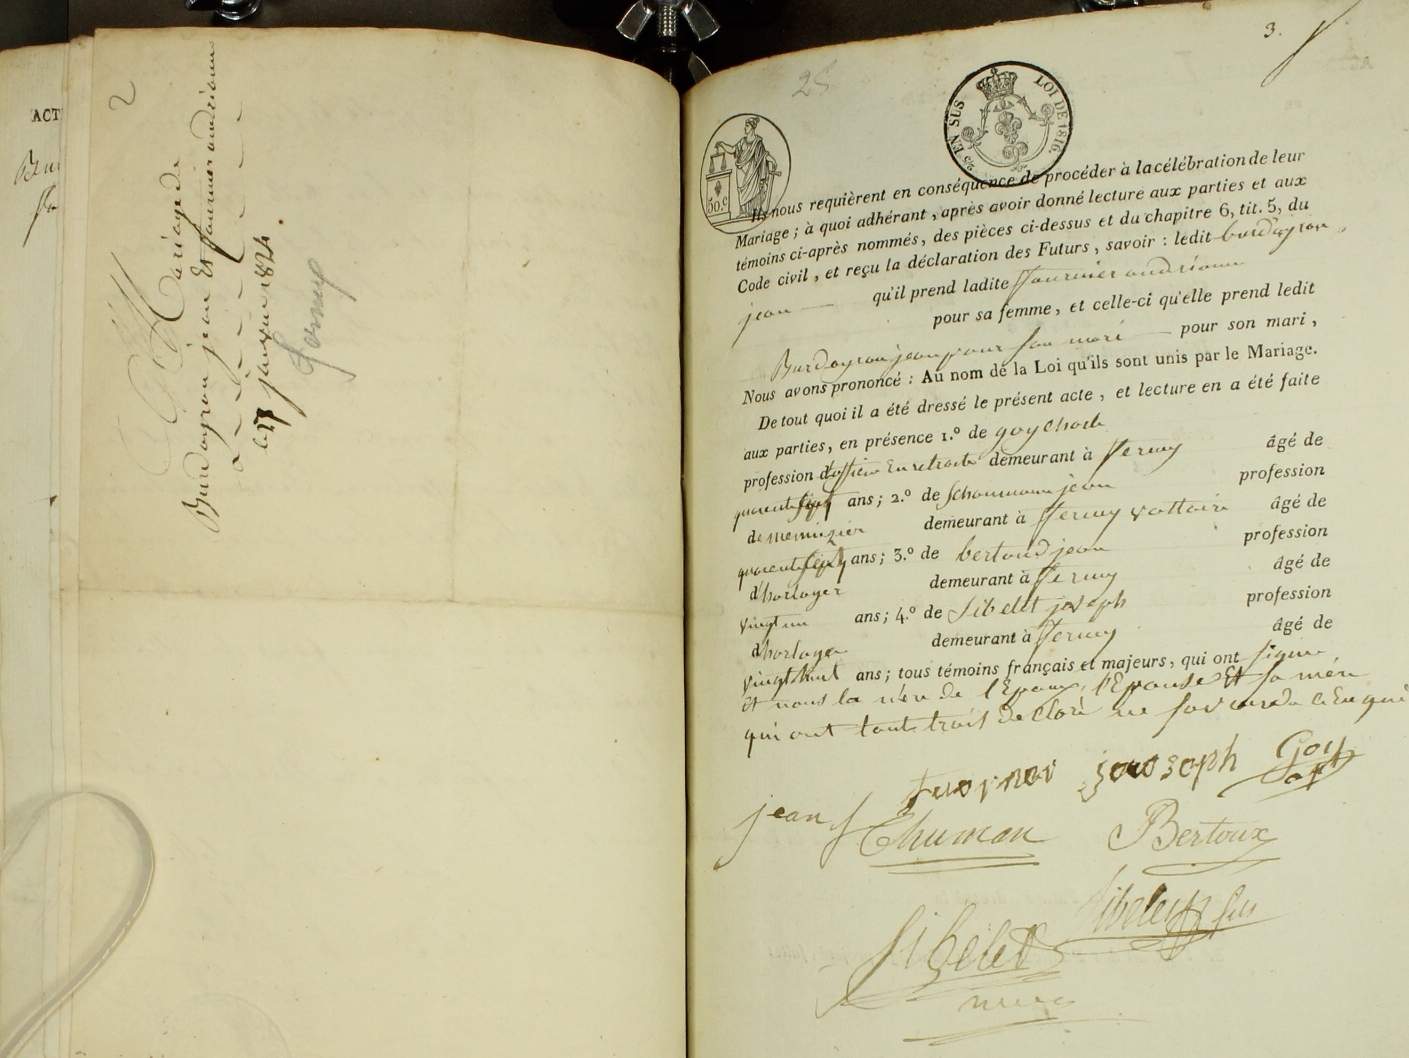 ACT
2
Mariage de
Burdayron jean Et fournier andrienne
le 27 janvier 1824.
fernex
25
3.
50.c
2/5 EN SUS
LOI DE 1816.
Ils nous requièrent en conséquence de procéder à la célébration de leur
Mariage ; à quoi adhérant , après avoir donné lecture aux parties et aux
témoins ci-après nommés, des pièces ci-dessus et du chapitre 6, tit. 5, du
Code civil , et reçu la déclaration des Futurs , savoir : ledit burdayron
jean qu'il prend ladite fournier andrienne
pour sa femme, et celle-ci qu'elle prend ledit
Burdayron jean pour son mari pour son mari ,
Nous avons prononcé : Au nom de la Loi qu'ils sont unis par le Mariage.
De tout quoi il a été dressé le présent acte , et lecture en a été faite
aux parties, en présence 1.º de goy
profession d'officier En retraite demeurant à ferney âgé de
quarente sept ans ; 2.º de Schoumann jean profession
de menuizier demeurant à ferney voltaire âgé de
quarente sept ans ; 3.º de bertoud jean profession
d'horloger demeurant à ferney âgé de
vingt un ans ; 4.º de Sibelet joseph profession
d'horloger demeurant à ferney âgé de
vingt huit ans ; tous témoins français et majeurs, qui ont signe
Et nous la mère de l'Epoux, l'Epouse Et sa mère
qui ont tout trois declaré ne savoir de ce enquis
jouosoph Goy
jean Chuman Bertoux
Sibelet fils
Sibelet